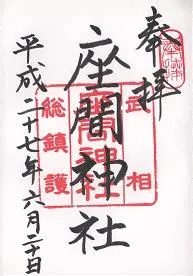 奉拝
武相
座間神社
座間神社
総鎮護
平成二十七年六月二十日